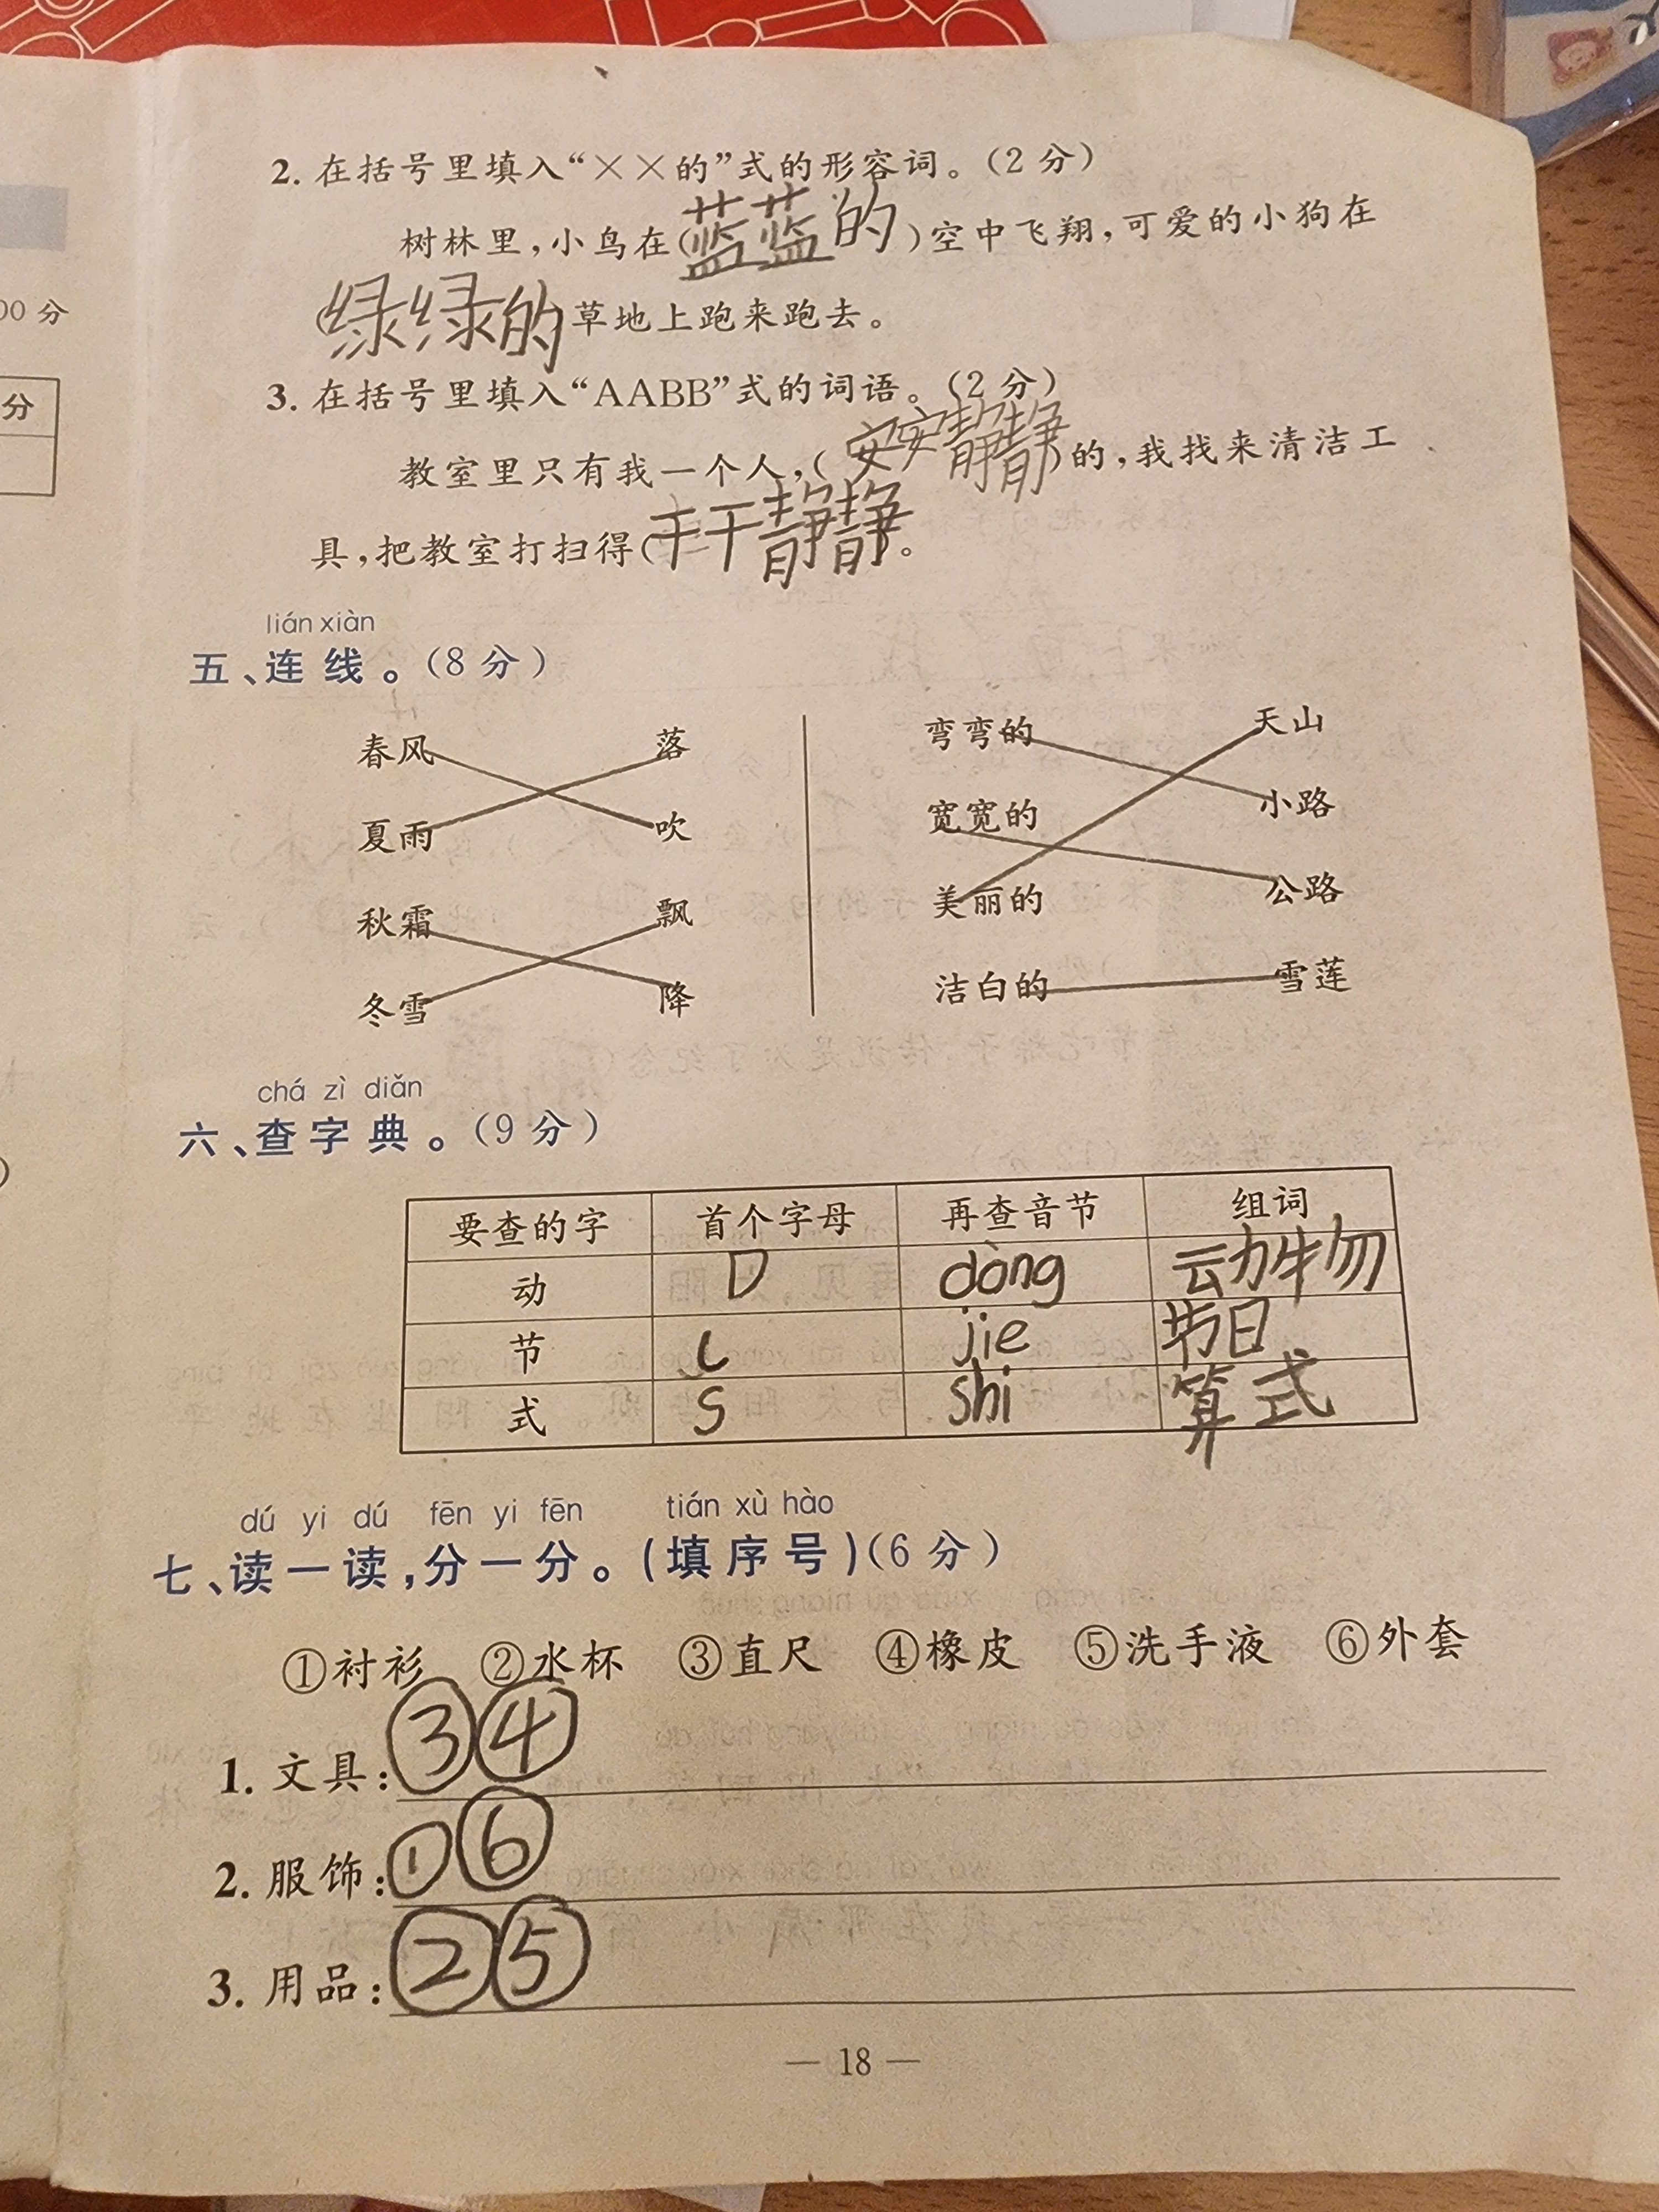 2. 在括号里填入“××的”式的形容词。(2 分)
树林里,小鸟在(蓝蓝的)空中飞翔,可爱的小狗在
(绿绿的)草地上跑来跑去。
00 分
3. 在括号里填入“AABB”式的词语。(2 分)
分
教室里只有我一个人,(安安静静)的,我找来清洁工
具,把教室打扫得(干干静静)。
lián xiàn
五、连线。(8 分)
春风 落 弯弯的 天山
夏雨 吹 宽宽的 小路
秋霜 飘 美丽的 公路
冬雪 降 洁白的 雪莲
chá zì diǎn
六、查字典。(9 分)
要查的字 首个字母 再查音节 组词
动 D dòng 动物
节 jie 节日
式 S shi 算式
dú yi dú fēn yi fēn tián xù hào
七、读一读,分一分。(填序号)(6 分)
①衬衫 ②水杯 ③直尺 ④橡皮 ⑤洗手液 ⑥外套
1. 文具:③④
2. 服饰:①⑥
3. 用品:②⑤
— 18 —